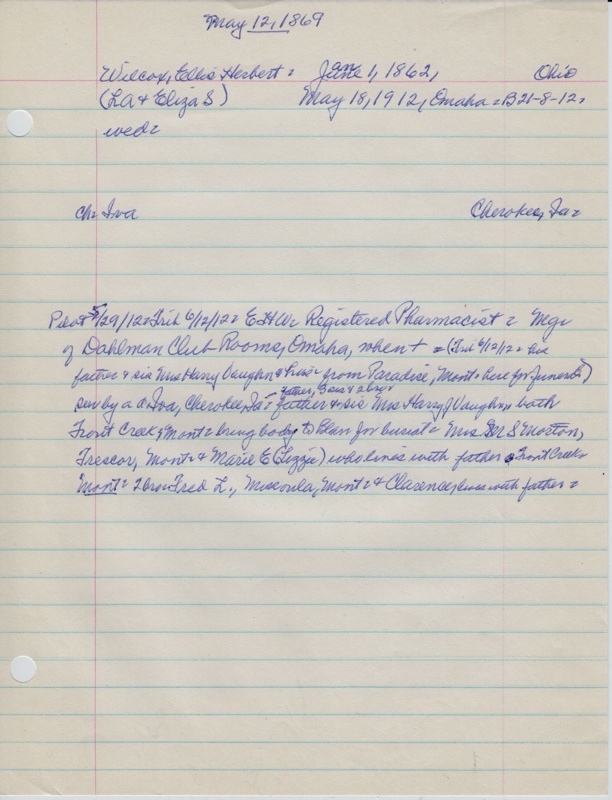 May 12, 1869
Wilcox, Ellis Herbert = June an 1, 1862, Ohio
(LA & Eliza S) May 18, 1912, Omaha = B21-8-12=
wed=
ch= Iva Cherokee, Ia=
Pilot 5/29/12= Trib 6/12/12= EHW= Registered Pharmacist = Mgr
of Dahlman Club Rooms, Omaha, when + = (Trib 6/12/12= his
father & sis Mrs Harry Vaughn from Paradise, Mont= here for funeral)
sur by a d= Iva, Cherokee, Ia= father, 3 sis & 2 bro=
father & sis Mrs Harry J Vaughn, both
Trout Creek, Mont= bring body to Blair for burial = Mrs S Morton,
Mont= & Marie E (Lizzie) who lives with father Trout Creek=
Mont= 2 bro= Fred L., Missoula, Mont= & Clarence, lives with father =